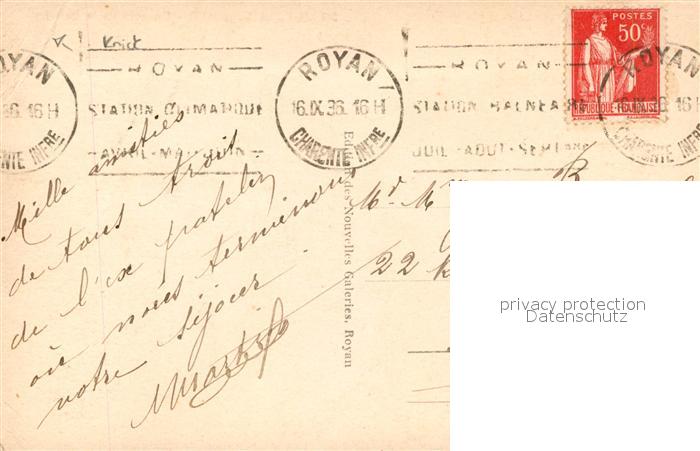 Knick
ROYAN
STATION CLIMATIQUE
AVRIL-MAI-JUIN
ROYAN
16.IX.36. 16 H
CHARENTE INFRE
ROYAN
STATION BALNEAIRE
JUIL-AOUT-SEPTEMB
POSTES
50c
REPUBLIQUE FRANÇAISE
ROYAN
36. 16 H
CHARENTE INFRE
ROYAN
16.IX.36
CHARENTE INFRE
Mille amitiés
de tous trois
de l'ex
où nous terminons
notre séjour.
Edition des Nouvelles Galeries, Royan
Mr M
22
privacy protection
Datenschutz